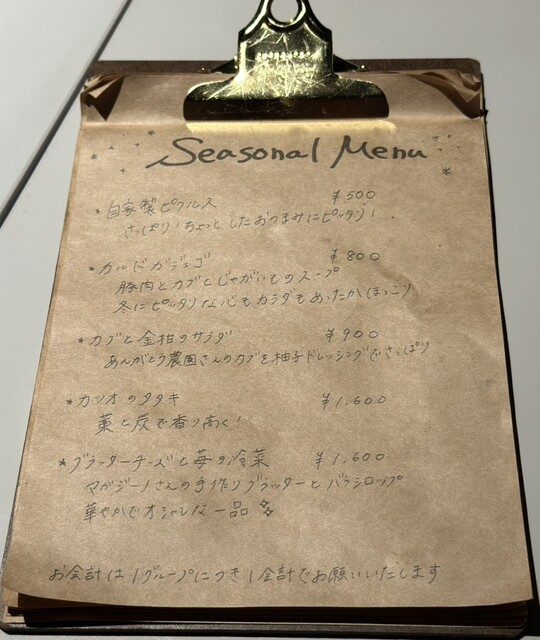 Seasonal Menu
*自家製ピクルス ¥500
さっぱり!ちょっとしたおつまみにピッタリ!
*カルドガジェゴ ¥800
豚肉とカブとじゃがいものスープ
冬にピッタリな心もカラダもあったかほっこり
*カブと金柑のサラダ ¥900
あんがとう農園さんのカブを柚子ドレッシングでさっぱり
*カツオのタタキ ¥1,600
藁と炭で香り高く!
*ブラッターチーズと苺の冷菜 ¥1,600
マガジーノさんの手作りブラッターとバラシロップ
華やかでオシャレな一品
お会計は1グループにつき1会計でお願いいたします